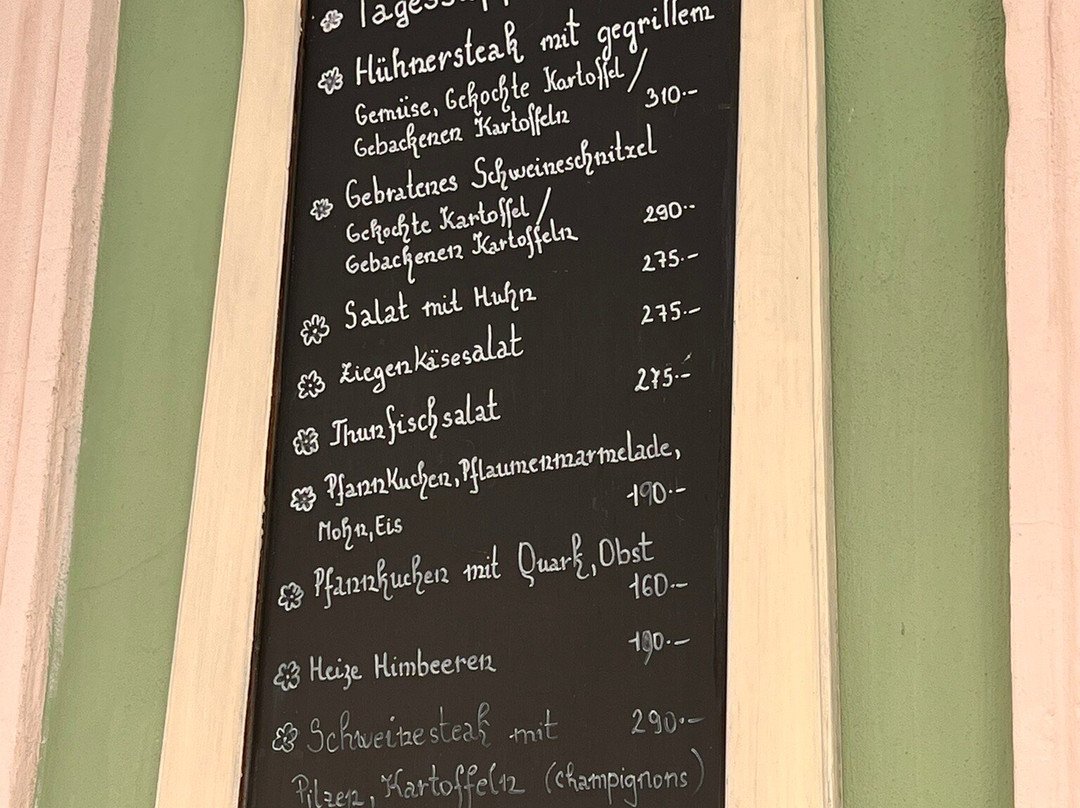 Hühnersteak mit gegrillem
Gemüse, Gekochte Kartoffel /
Gebackenen Kartoffeln 310.-
Gebratenes Schweineschnitzel
Gekochte Kartoffel /
Gebackenen Kartoffeln 290.-
Salat mit Huhn 275.-
Ziegenkäsesalat 275.-
Thunfischsalat 275.-
Pfannkuchen, Pflaumenmarmelade,
Mohn, Eis 190.-
Pfannkuchen mit Quark, Obst
160.-
Heize Himbeeren 190.-
Schweinesteak mit 290.-
Pilzen, Kartoffeln (champignons)